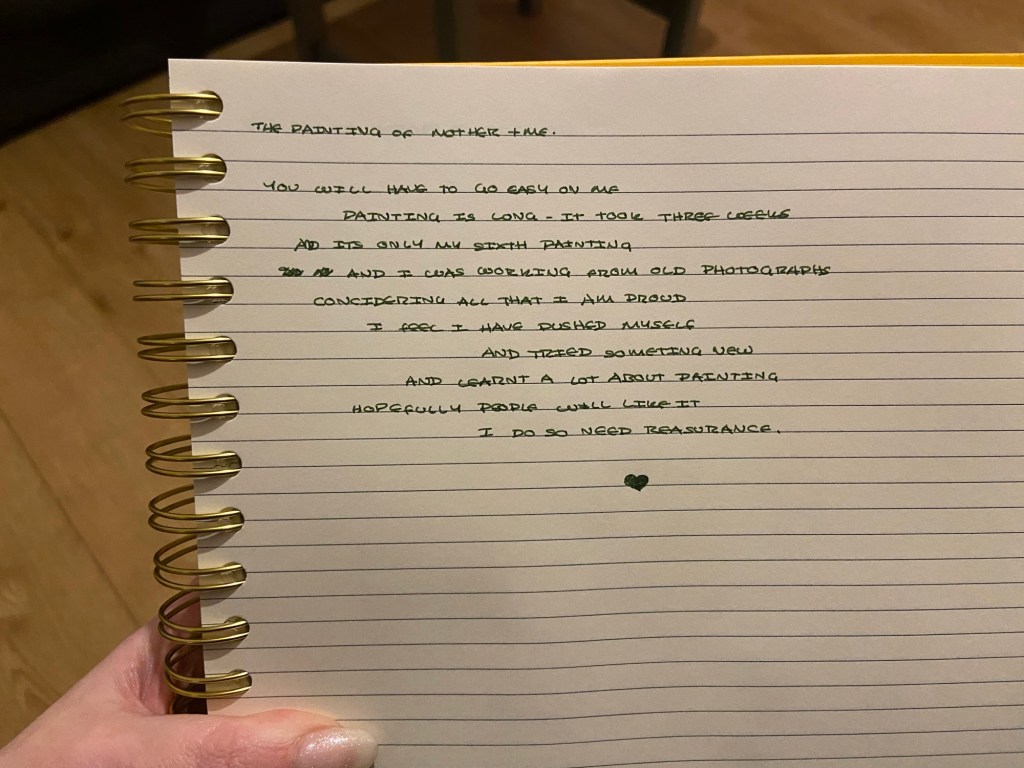 THE PAINTING OF MOTHER + ME.
YOU WILL HAVE TO GO EASY ON ME
PAINTING IS LONG - IT TOOK THREE WEEKS
AD ITS ONLY MY SIXTH PAINTING
AND I WAS WORKING FROM OLD PHOTOGRAPHS
CONCIDERING ALL THAT I AM PROUD
I FEEL I HAVE PUSHED MYSELF
AND TRIED SOMETING NEW
AND LEARNT A LOT ABOUT PAINTING
HOPEFULLY PEOPLE WILL LIKE IT
I DO SO NEED REASURANCE.